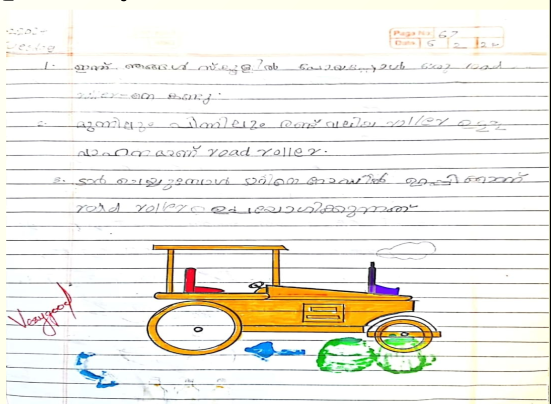 Page No 67
Date 5 2 24
1. ഇന്ന് ഞങ്ങൾ സ്കൂളിൽ പോയപ്പോൾ ഒരു road
കണ്ടു.
2. മുന്നിലും പിന്നിലും രണ്ട് വലിയ roller ഉള്ള
വാഹനമാണ് road roller.
3. ടാർ ചെയ്യുമ്പോൾ ടാറിനെ റോഡിൽ ഉറപ്പിക്കാനാണ്
road roller ഉപയോഗിക്കുന്നത്
Very good